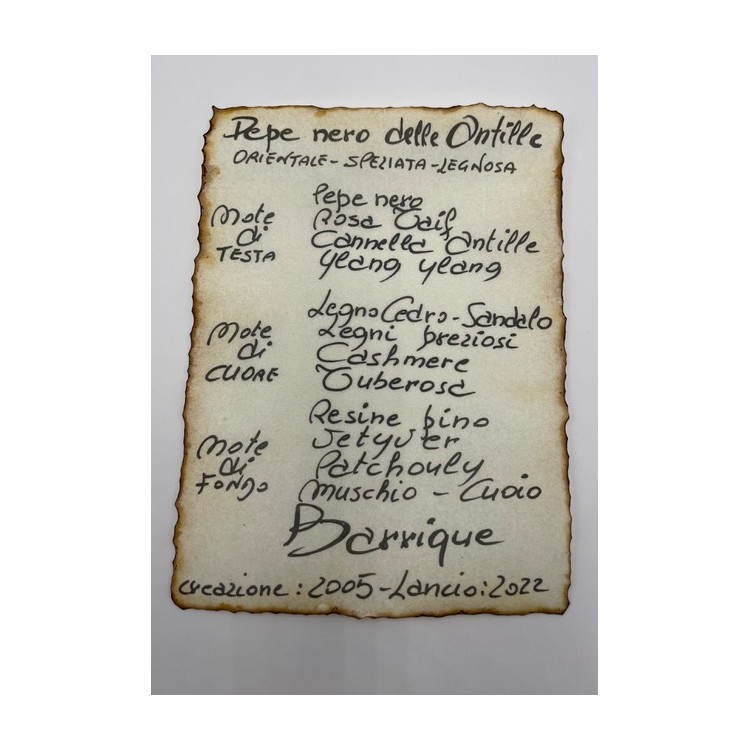 Pepe nero delle Antille
ORIENTALE - SPEZIATA - LEGNOSA
Note
di
TESTA
Pepe nero
Rosa Taif
Cannella Antille
Ylang Ylang
Note
di
CUORE
Legno Cedro - Sandalo
Legni preziosi
Cashmere
Tuberosa
Note
di
FONDO
Resine pino
Vetyver
Patchouly
Muschio - Cuoio
Barrique
creazione: 2005 - Lancio: 2022